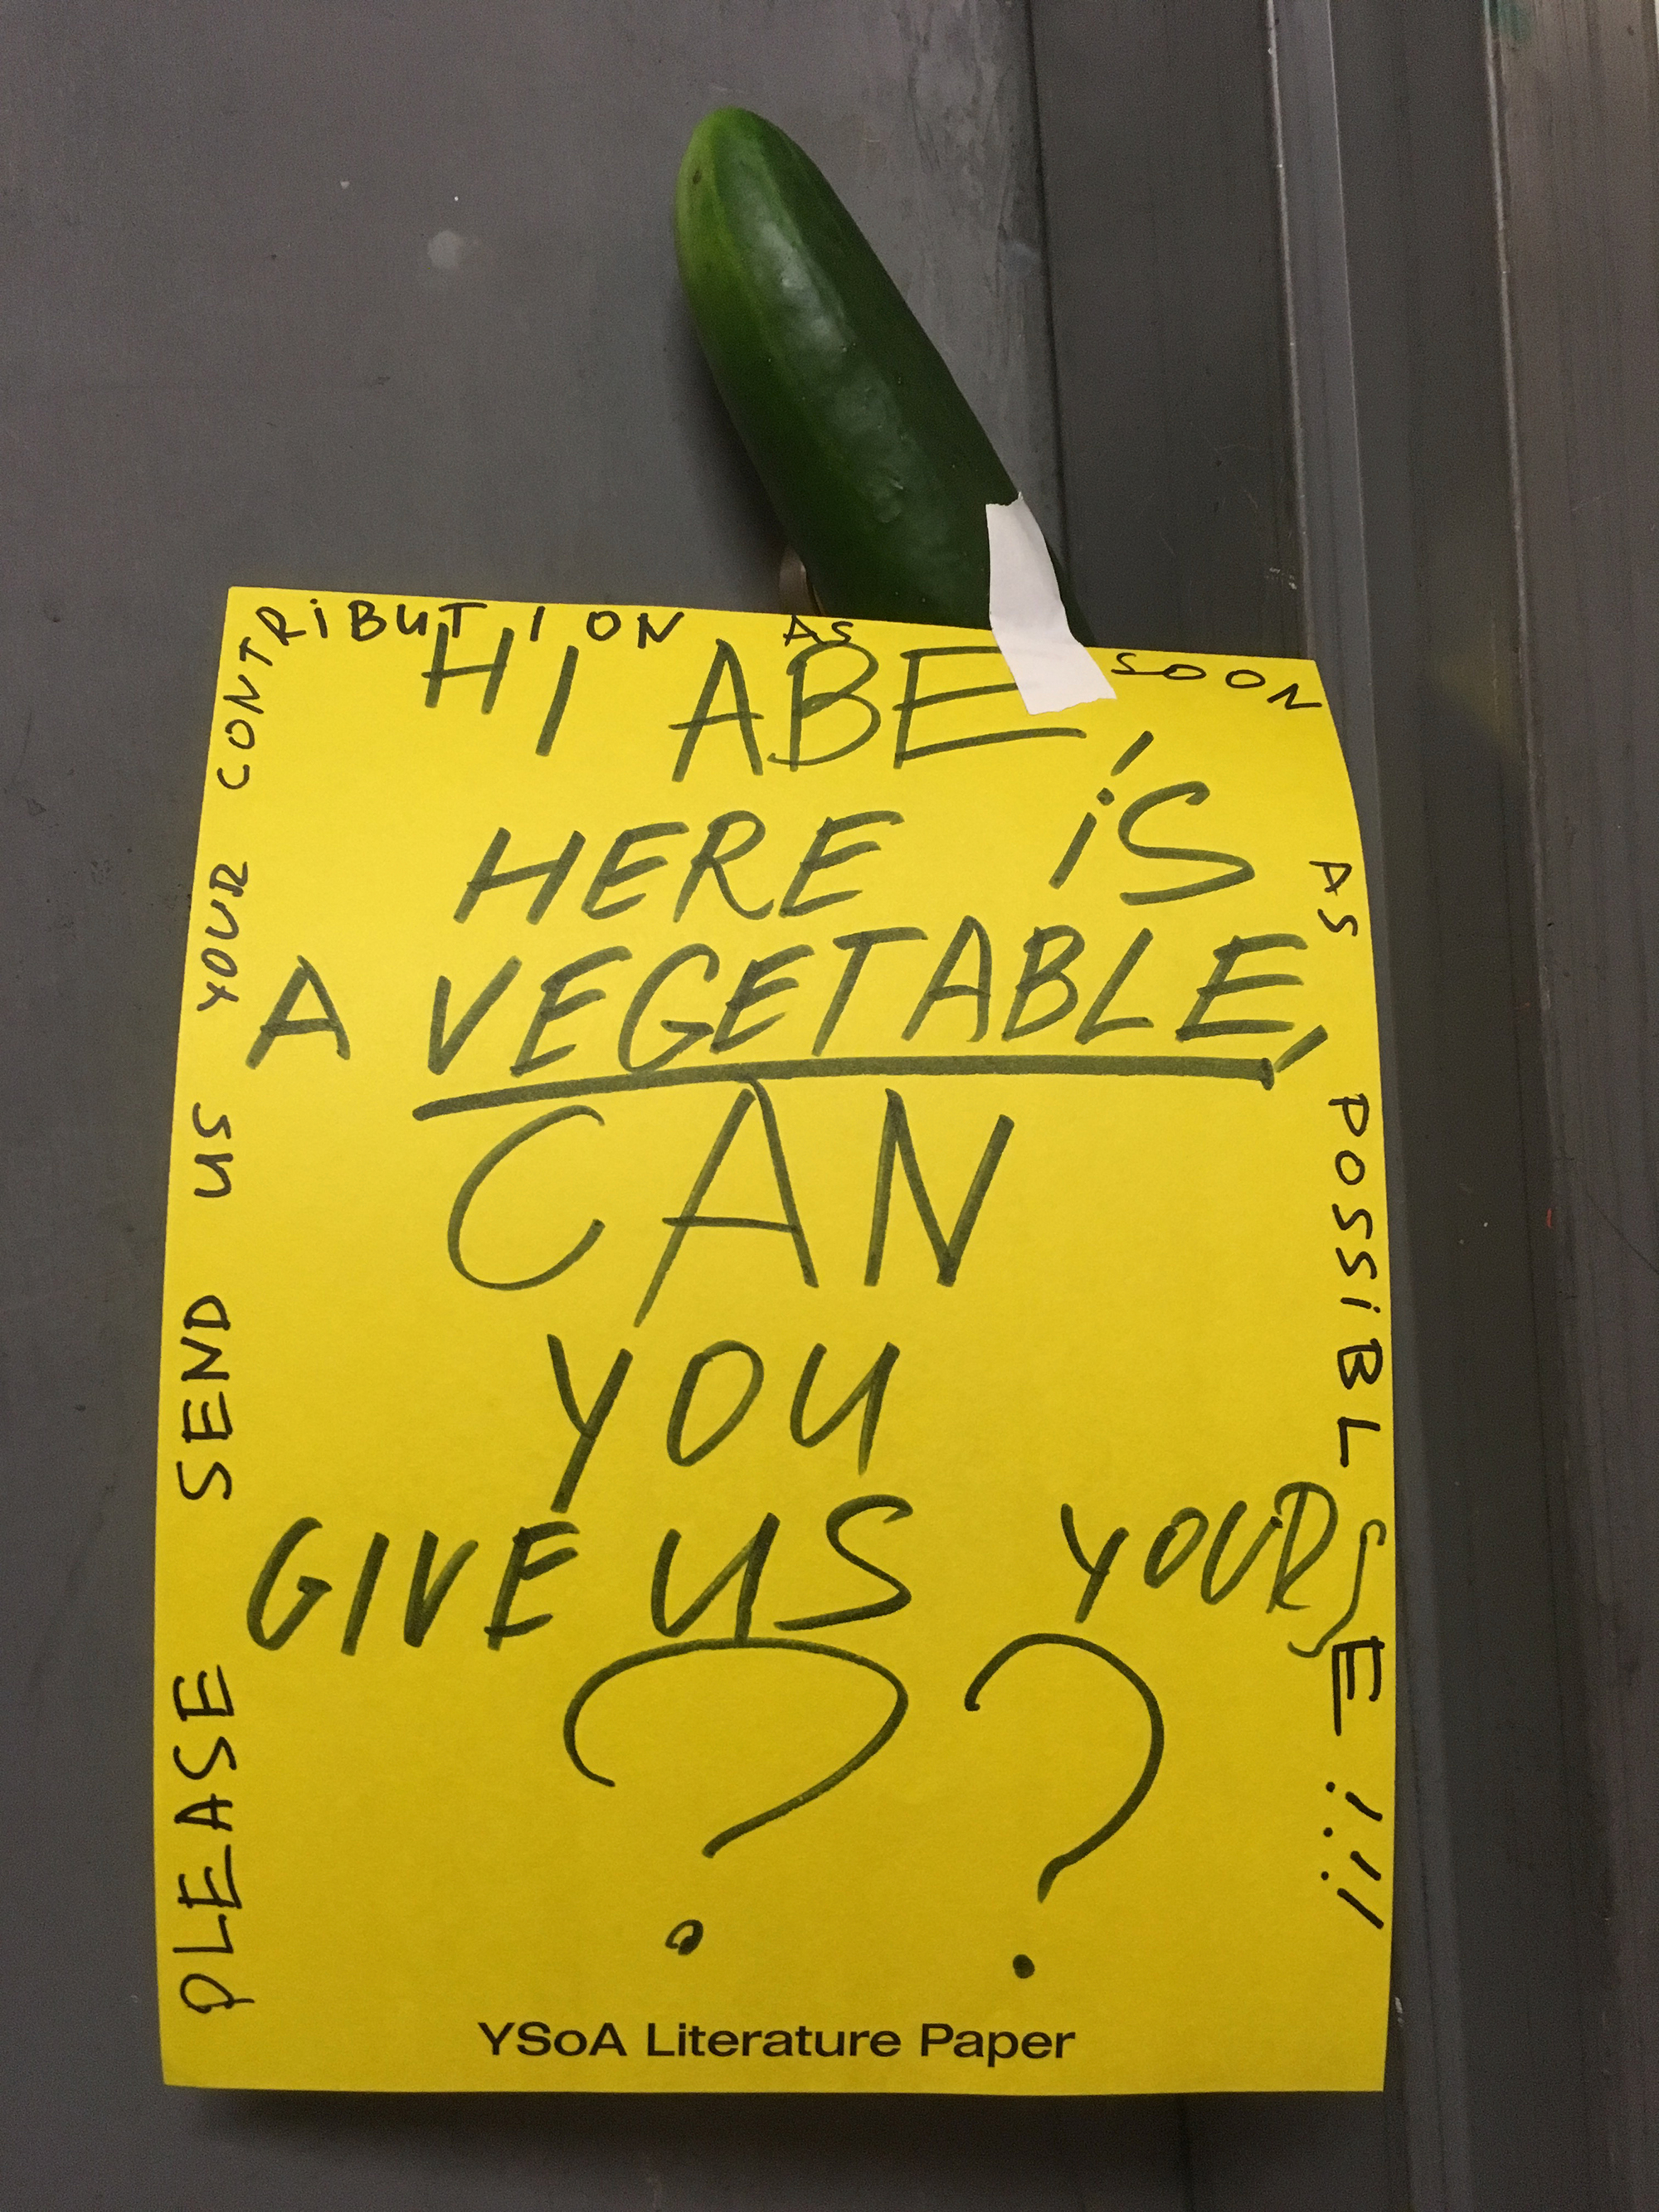 HI ABE,
HERE iS
A VEGETABLE,
CAN
YOU
GIVE US YOURS
??
PLEASE SEND US YOUR CONTRiBUTION AS SOON AS POSSiBLE!!!
YSoA Literature Paper